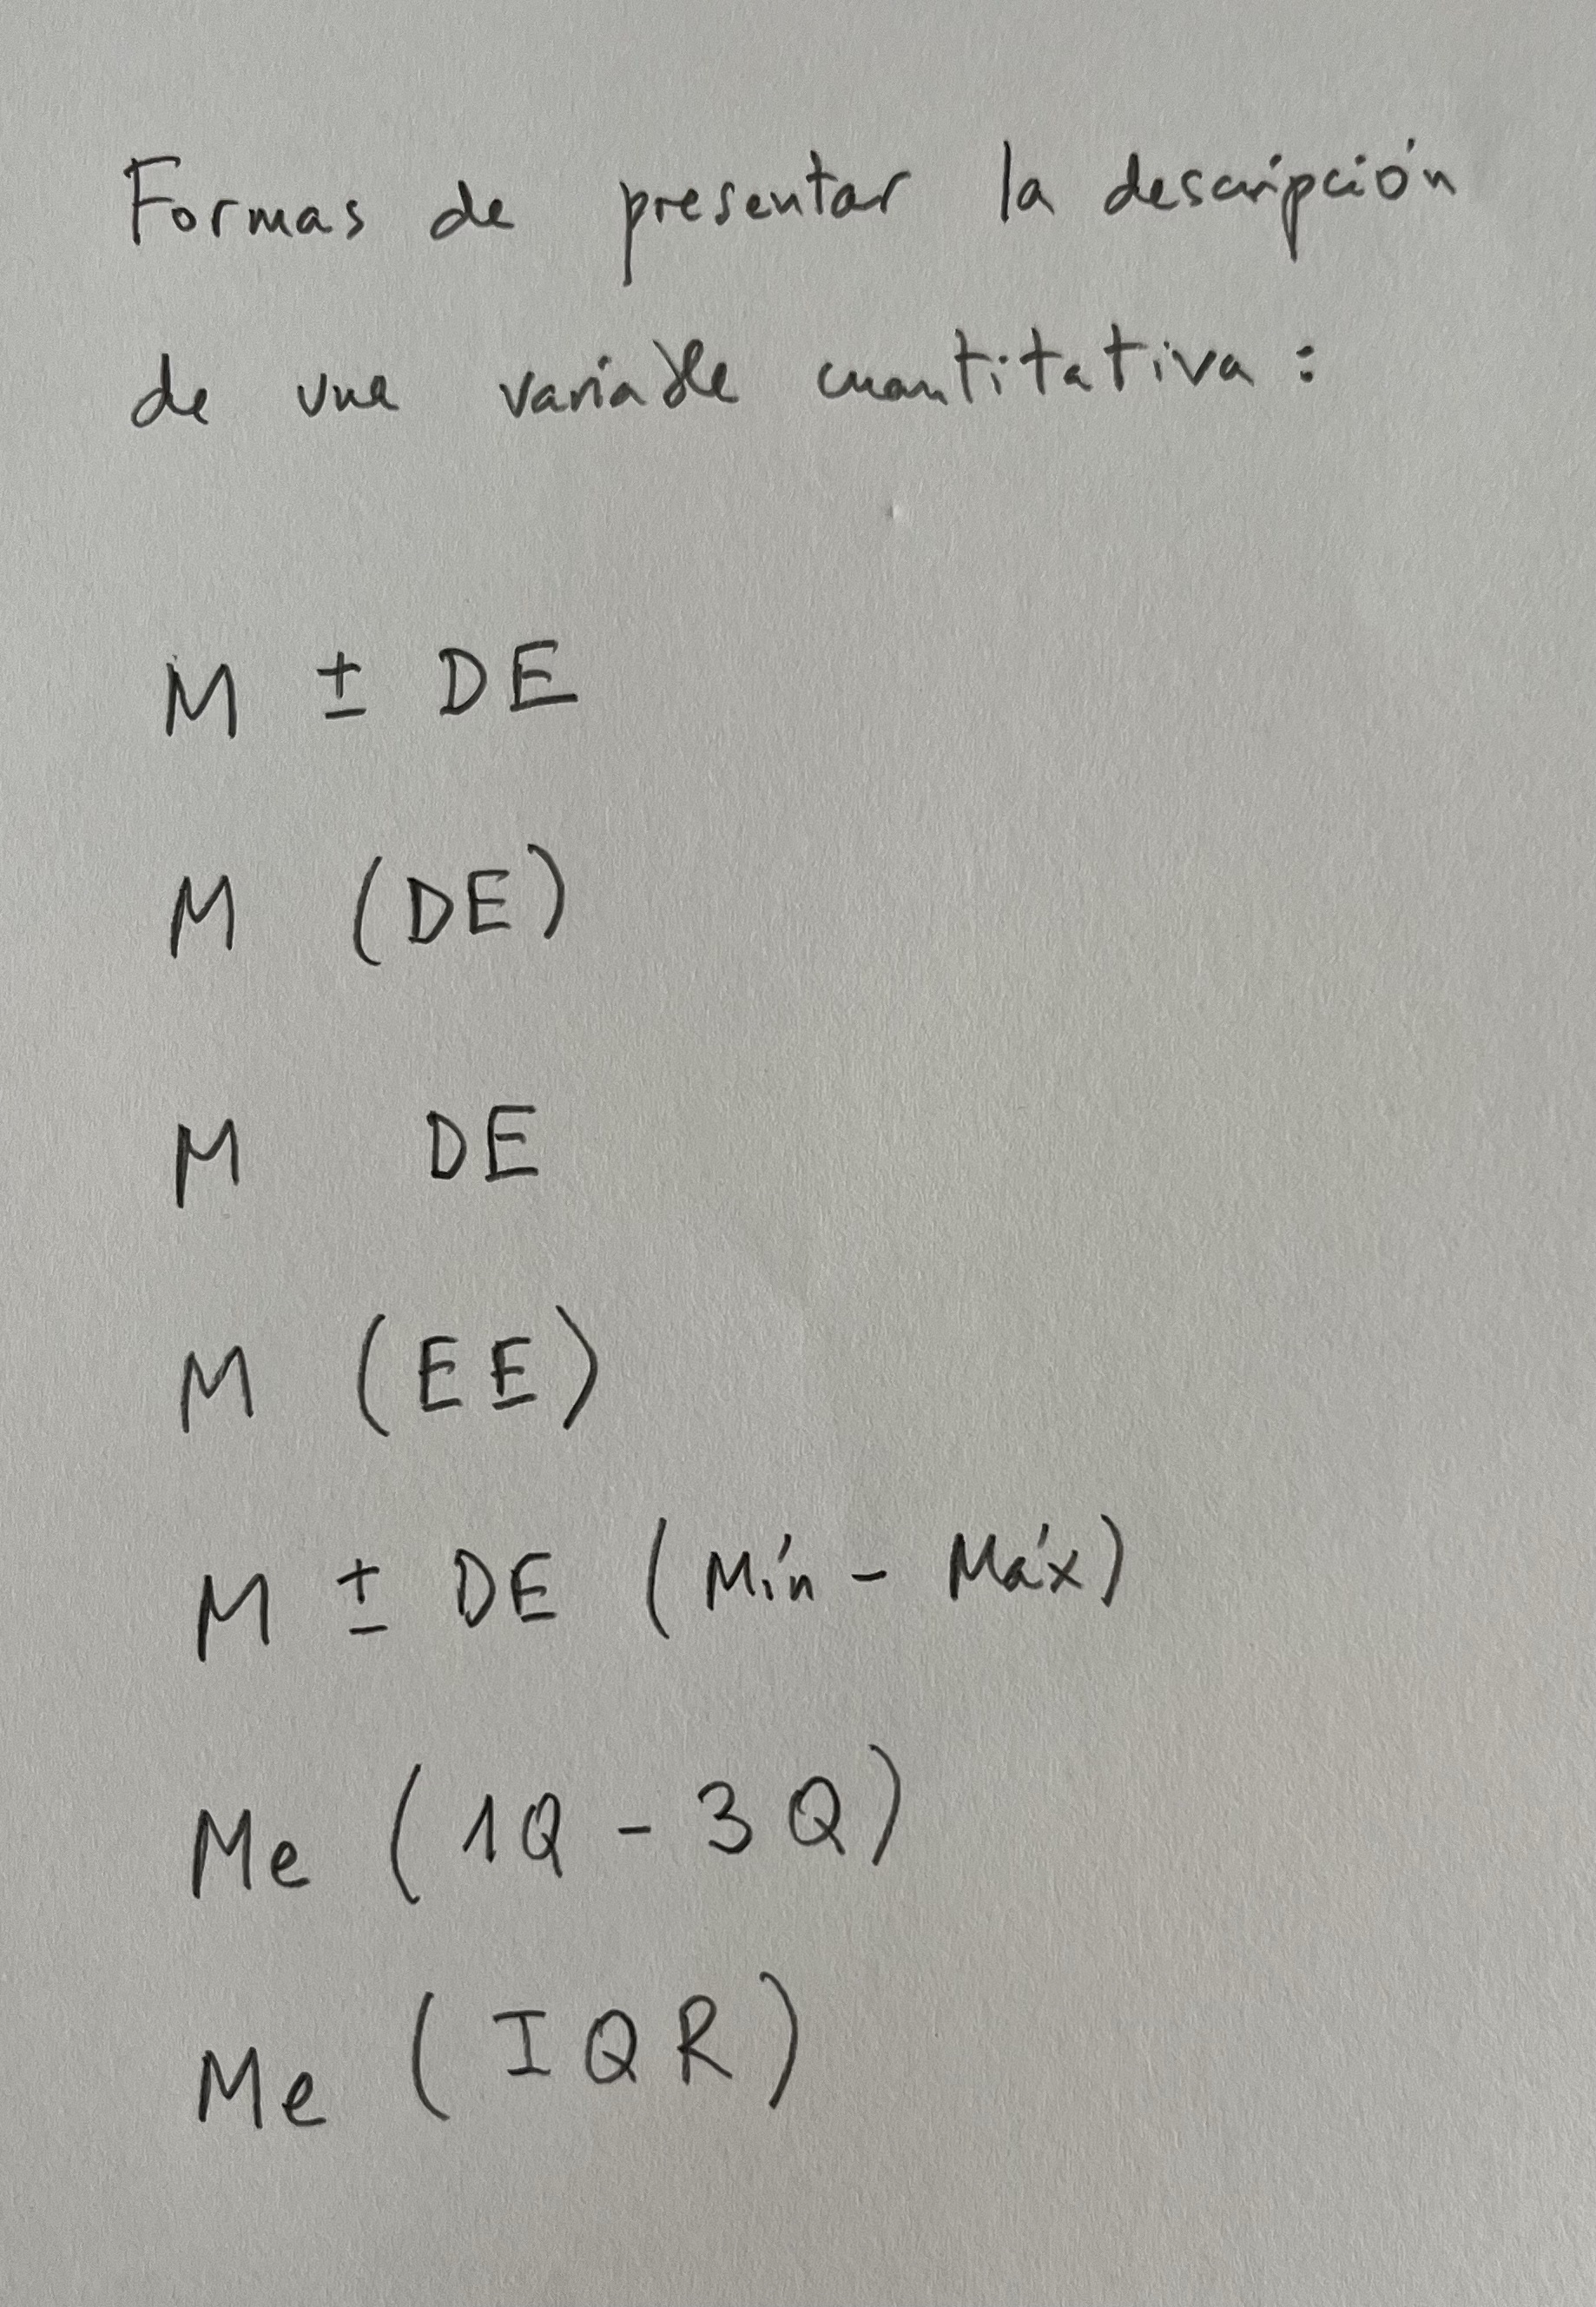 Formas de presentar la descripción
de una variable cuantitativa:
M ± DE
M (DE)
M DE
M (EE)
M ± DE (Mín - Máx)
Me (1Q - 3Q)
Me (IQR)